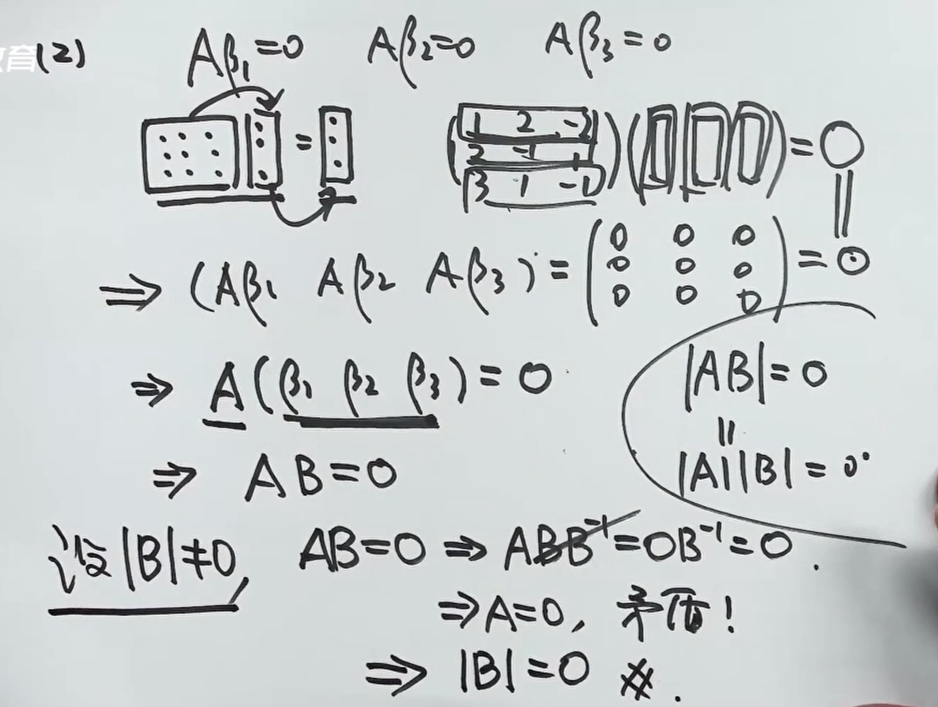 教育
(2) Aβ₁=0 Aβ₂=0 Aβ₃=0
= ( 1 2 -2
2 -1 1
3 1 -1 ) ( ) = 0
⇒ (Aβ₁ Aβ₂ Aβ₃) = ( 0 0 0
0 0 0
0 0 0 ) = 0
⇒ A(β₁ β₂ β₃) = 0
⇒ AB=0
|AB|=0
||
|A||B|=0
设|B|≠0, AB=0 ⇒ ABB⁻¹=0B⁻¹=0.
⇒A=0, 矛盾!
⇒ |B|=0 #.